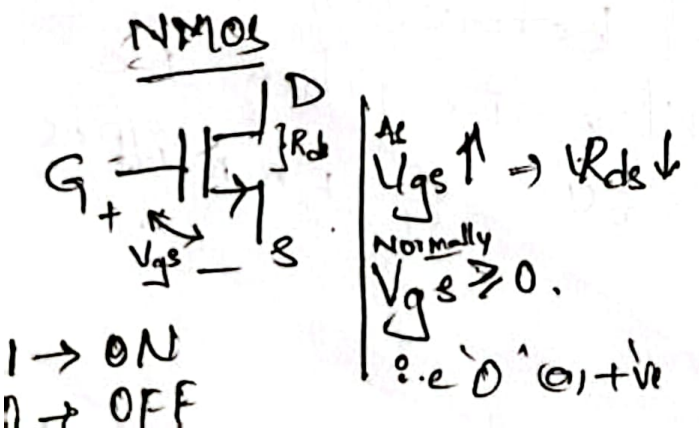 NMOS
D
Rds
G
+
Vgs
–
S
1 → ON
0 → OFF
As
Vgs ↑ ⇒ Rds ↓
Normally
Vgs ≥ 0.
i.e '0' (or) +ve